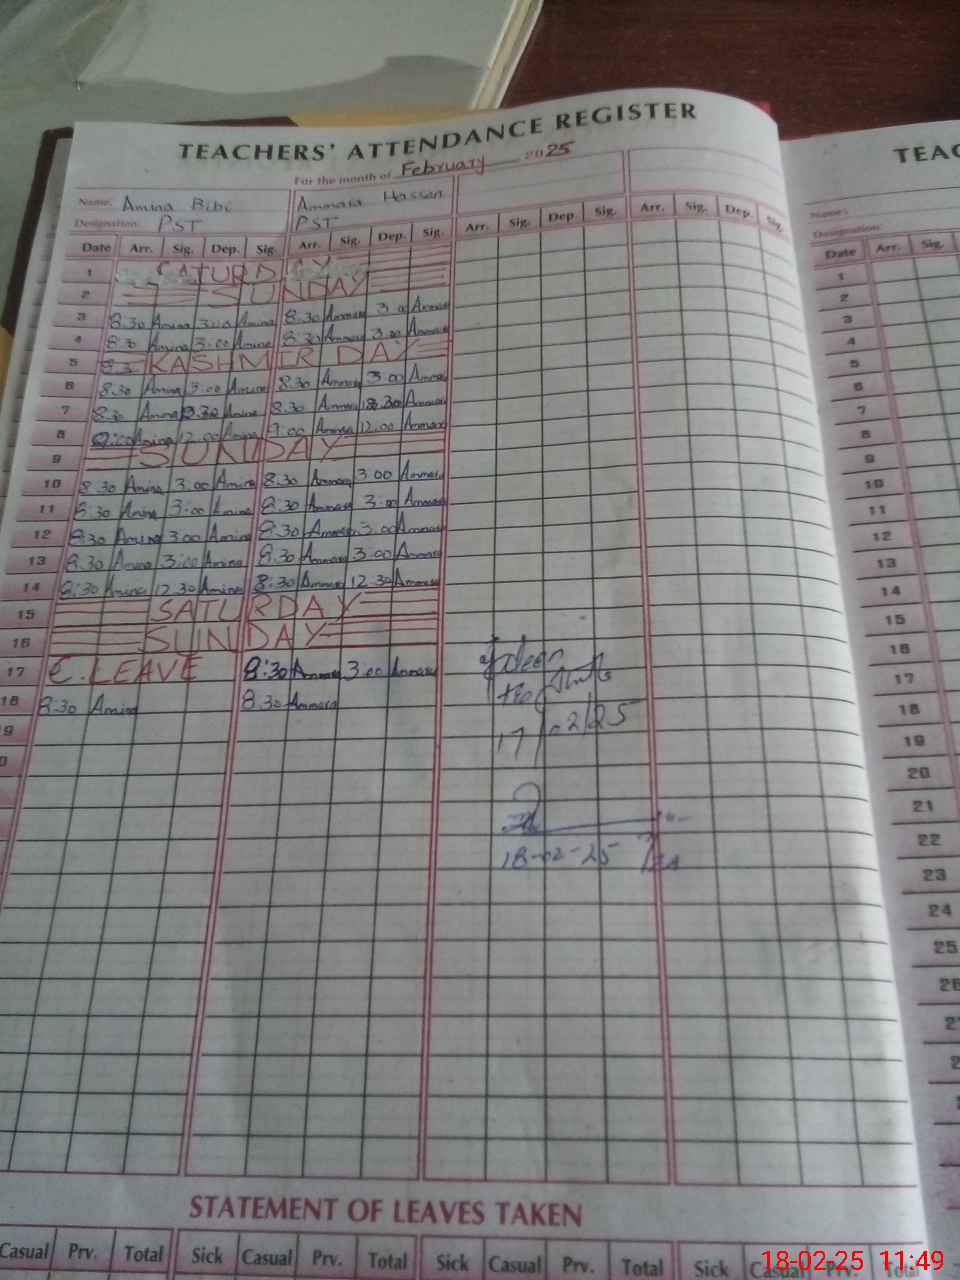 TEACHERS' ATTENDANCE REGISTER
For the month of February 2025
Name: Amina Bibi Ammara Hassan
Designation: PST PST
Date Arr. Sig. Dep. Sig. Arr. Sig. Dep. Sig. Arr. Sig. Dep. Sig. Arr. Sig. Dep. Sig.
1 SATURDAY
2 SUNDAY
3 8:30 Amina 3:00 Amina 8:30 Ammara 3:00 Ammara
4 8:30 Amina 3:00 Amina 8:30 Ammara 3:00 Ammara
5 KASHMIR DAY
6 8:30 Amina 3:00 Amina 8:30 Ammara 3:00 Ammara
7 8:30 Amina 8:30 Ammara Ammara
8 Amina 12:00 Amina 9:00 Ammara 12:00 Ammara
9 SUNDAY
10 8:30 Amina 3:00 Amina 8:30 Ammara 3:00 Ammara
11 8:30 Amina 3:00 Amina 8:30 Ammara 3:00 Ammara
12 8:30 Amina 3:00 Amina 8:30 Ammara 3:00 Ammara
13 8:30 Amina 3:00 Amina 8:30 Ammara 3:00 Ammara
14 8:30 Amina 12:30 Amina 8:30 Ammara 12:30 Ammara
15 SATURDAY
16 SUNDAY
17 C.LEAVE 8:30 Ammara 3:00 Ammara
18 8:30 Amina 8:30 Ammara
17/2/25
18-02-25
STATEMENT OF LEAVES TAKEN
Casual Prv. Total Sick Casual Prv. Total Sick Casual Prv. Total Sick Casual Prv. Total
TEAC
Name:
Designation:
Date Arr. Sig.
1
2
3
4
5
6
7
8
9
10
11
12
13
14
15
16
17
18
19
20
21
22
23
24
25
26
18-02-25 11:49